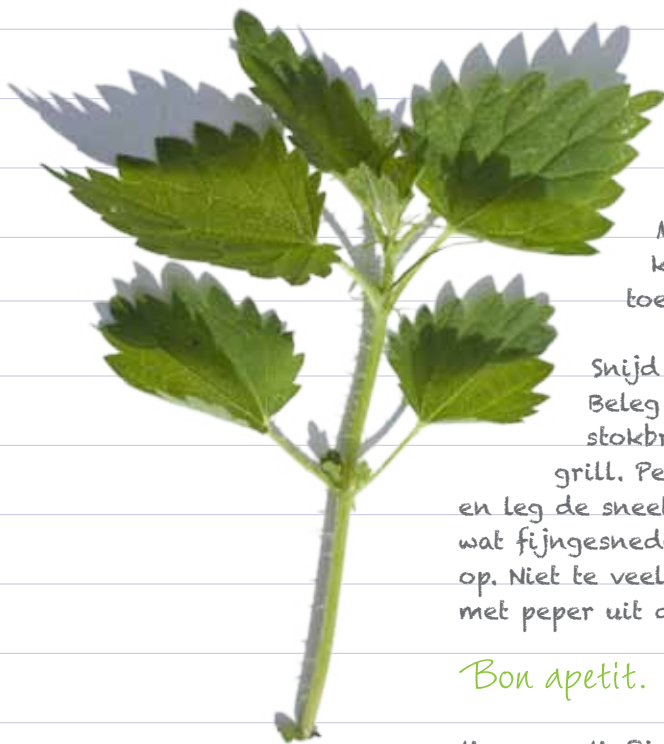 toe
Snijd
Beleg
grill. Pe
en leg de sneel
wat fijngesnede
op. Niet te veel
met peper uit d
Bon apetit.